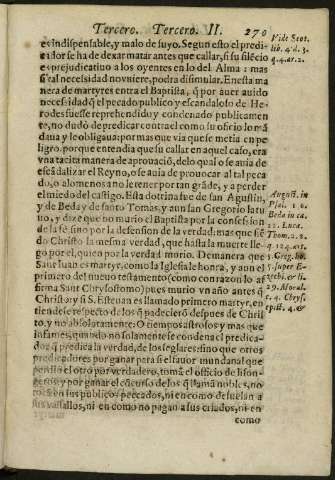 Tercero. Tercero. II. 270
es indispensable, y malo de suyo. Segun esto el predi-
cador se ha de dexar matar antes que callar, si su silẽcio
es prejudicatiuo a los oyentes en lo del Alma: mas
si tal necessidad no vuiere, podra dissimular. En esta ma
nera de martyres entra el Baptista, q̃ por auer auido
necessidad q̃ el pecado publico y escandaloso de He-
rodes fuesse reprehendido y condenado publicamen
te, no dudò de predicar contra el como su oficio lo mã
daua y le obligaua: por mas que via que se metia en pe
ligro. porque entendia que su callar en aquel caso, era
vna tacita manera de aprouaciõ, de lo qual o se auia de
escãdalizar el Reyno, o se auia de prouocar al tal peca
do, o alomenos a no le tener por tan grãde, y a perder
el miedo del castigo. Esta dotrina fue de san Agustin,
y de Beda y de santo Tomas, y aun san Gregorio la tu
uo, y dize que no murio el Baptista por la confession
de la fe, sino por la defension de la verdad: mas que siẽ
do Christo la mesma verdad, que hasta la muerte lle-
go por el, quien por la verdad murio. De manera que
San Iuan es martyr, como la Iglesia le honra, y aun el
primero del nueuo testamento (como con razon lo af
firma Sant Chrysostomo) pues murio vn año antes q̃
Christo: y si S. Esteuan es llamado primero martyr, en
tiendese respecto de los q̃ padecierõ despues de Chris
to, y no absolutamente. O tiempos astrosos y mas que
infames, quando no solamente se condena el predica-
dor q̃ predica la verdad, de los seglares: sino que otros
predicadores por ganar para si el fauor mundanal que
perdio el otro por verdadero, tomã el officio de lison-
geros: y por ganar el cõcurso de los q̃ llama nobles, no
tocã en sus publicos peccados, ni en como desuellan a
sus vassallos, ni en como no pagan a sus criados, ni en
como
Vide Scot.
lib. 4. d. 3.
q. 4. ar. 2.
August. in
Psal.
Beda in ca.
22. Luca.
Thom. 2. 2.
q. 124. art.
Greg. ho.
super E-
zech. er li.
29. Moral.
c. 4. Chrys.